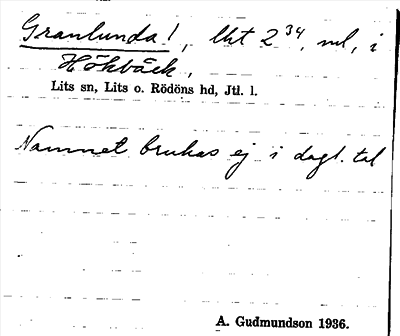 Granlunda!, lht 2³⁴, ml, i
Hökbäck,
Lits sn, Lits o. Rödöns hd, Jtl. l.
Namnet brukas ej i dagl. tal
A. Gudmundson 1936.